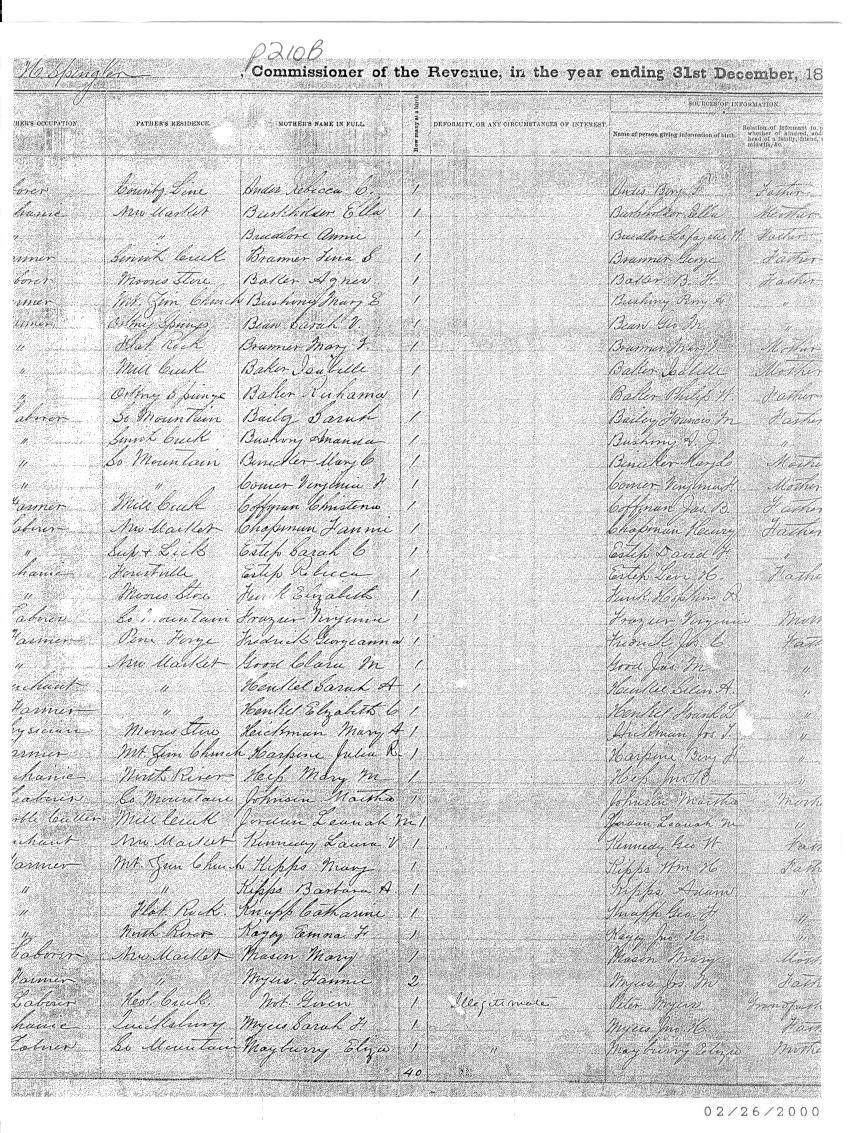 P210B
, Commissioner of the Revenue, in the year ending 31st December, 18
HER'S OCCUPATION. FATHER'S RESIDENCE. MOTHER'S NAME IN FULL. How many at a birth DEFORMITY, OR ANY CIRCUMSTANCES OF INTEREST. SOURCES OF INFORMATION.
Name of person giving information of birth. Relation of informant to p
whether of kindred, and
head of a family, friend,
midwife, &c.
borer County Line Andes Rebecca C. 1 Andes Benj F. Father
hanic New Market Burkholder Ella 1 Burkholder Ella Mother
" " Breedlove Annie 1 Breedlove Lafayette Father
rmer Smith Creek Branner Tina S 1 Branner George Father
borer Moores Store Baker Agnes 1 Baker B. F. Father
rmer Mt. Zion Church Bushong Mary E 1 Bushong "
rmer Orkney Springs Bean Sarah V. 1 Bean Geo M. "
" Flat Rock Branner Mary F. 1 Branner Mary F. Mother
" Mill Creek Baker Isabelle 1 Baker Isabelle Mother
" Orkney Springs Baker Ruhama 1 Baker Philip H. Father
Laborer So Mountain Bailey Sarah 1 Bailey Francis M Father
" Smith Creek Bushong Amanda 1 Bushong D. J. "
" So Mountain Mary C 1 Mary C Mother
" " Comer Virginia H 1 Comer Virginia H Mother
Farmer Mill Creek Coffman Christena 1 Coffman Jas. B. Father
aborer New Market Chapman Fannie 1 Chapman Henry Father
" Supt Lick Estep Sarah C 1 Estep David H. "
hanic Forestville Estep Rebecca 1 Estep Levi H. Fathe
" Moores Store Funk Elizabeth 1 Funk "
Laborer So Mountain Frazier Virginia 1 Frazier Virginia Moth
Farmer Pine Forge Fredrick Georgeanna 1 Fredrick Jos. C Fath
" New Market Good Clara M 1 Good Jas. M "
rchant " Henkel Sarah A 1 Henkel A. "
Farmer " Henkel Elizabeth C 1 Henkel "
hysician Moores Store Heishman Mary A 1 Heishman Jos. F. "
armer Mt. Zion Church Harpine Julia R. 1 Harpine Benj F. "
hanic North River Hep Mary M 1 Hep Jno B "
Laborer So Mountain Johnson Martha 1 Johnson Martha Moth
Mill Creek Jordan Leanah M 1 Jordan Leanah M "
rchant New Market Kennedy Laura V 1 Kennedy Geo W Fath
Farmer Mt. Zion Church Kipps Mary 1 Kipps Wm H Fath
" " Kipps Barbara A. 1 Kipps Adam "
" Flat Rock Knupp Catharine 1 Knupp Geo. F. "
" North River Kagey Emma F 1 Kagey Jno. H. "
Laborer New Market Mason Mary 1 Mason Mary Moth
Farmer " Myers Fannie 2 Myers Jos. M Fath
Laborer Creek Not Given 1 Illegitimate Peter Myers Grandfath
hanic Quicksburg Myers Sarah F. 1 Myers Jno H. Fath
Laborer So Mountain Mayburry Eliza 1 " Mayburry Eliza Mothe
40
02/26/2000